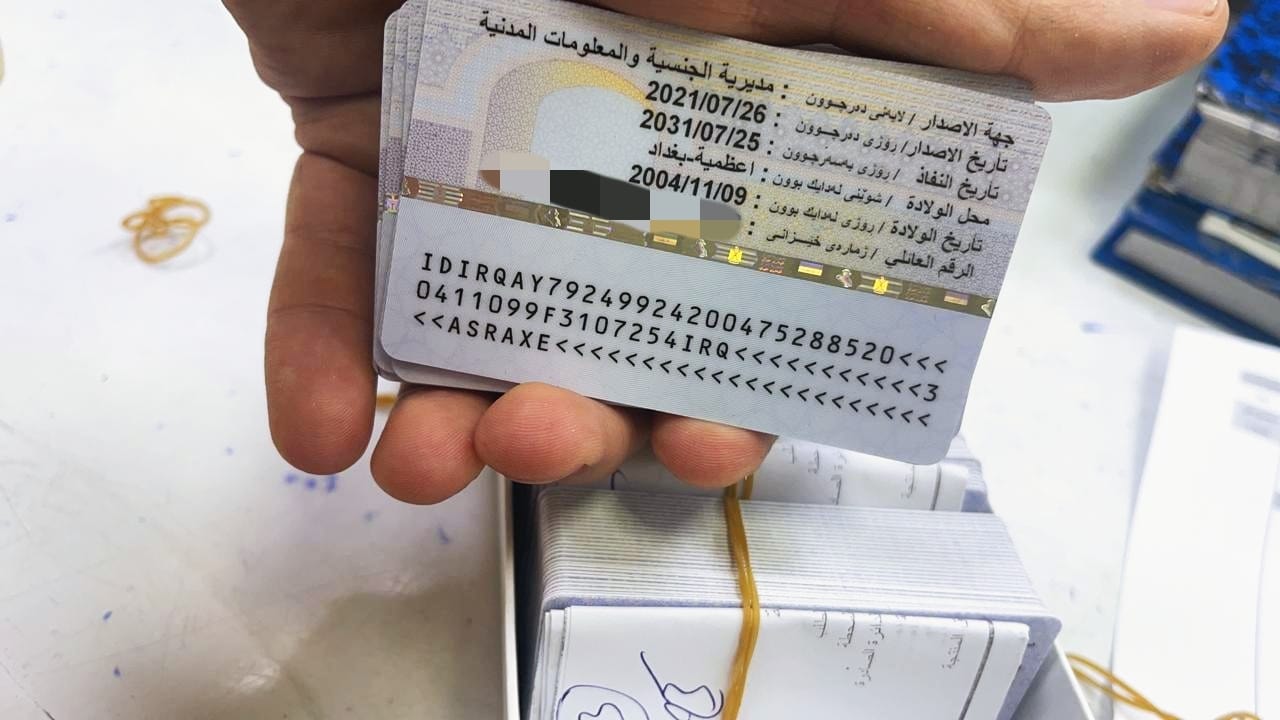 جهة الاصدار / لايەنى دەرچوون : مديرية الجنسية والمعلومات المدنية
تاريخ الاصدار / رۆژى دەرچوون : 2021/07/26
تاريخ النفاذ / رۆژى بەسەرچوون : 2031/07/25
محل الولادة / شوێنى لەدايك بوون : اعظمية-بغداد
تاريخ الولادة / رۆژى لەدايك بوون : 2004/11/09
الرقم العائلي / ژمارەى خێزانى :
IDIRQAY7924992420047528852​0<<<
0411099F3107254IRQ<<<<<<<<<<<3
<<ASRAXE<<<<<<<<<<<<<<<<<<<<<<